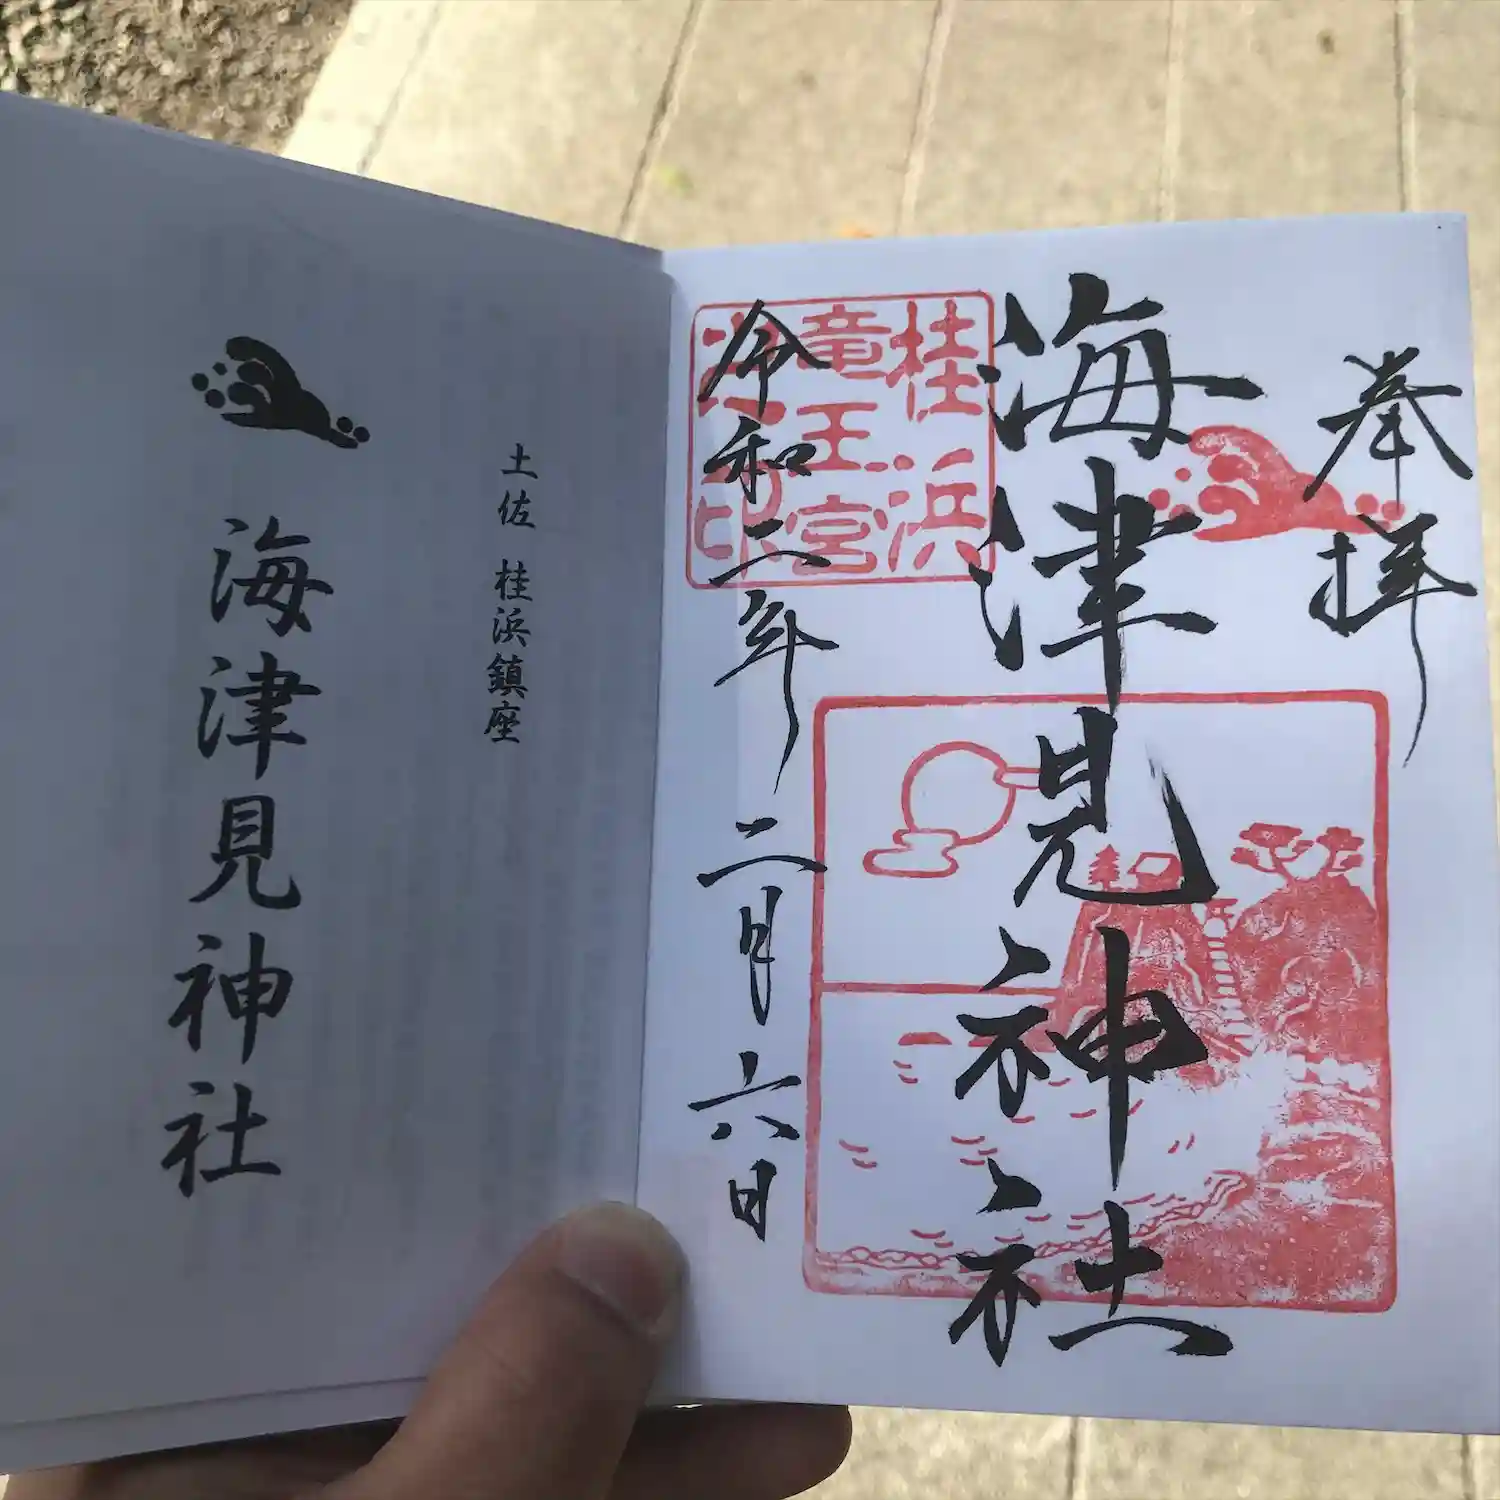 奉拝
海津見神社
桂浜
竜王宮
令和二年二月六日
土佐 桂浜鎮座
海津見神社